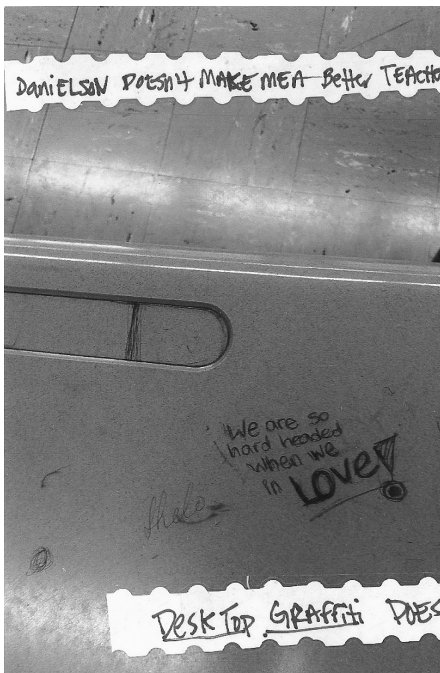 DaniELSON DOESn4 MAKE ME A Better TEACHE
We are so
hard headed
when we
in LOVE!
DESKTOP GRAFFiti DOES